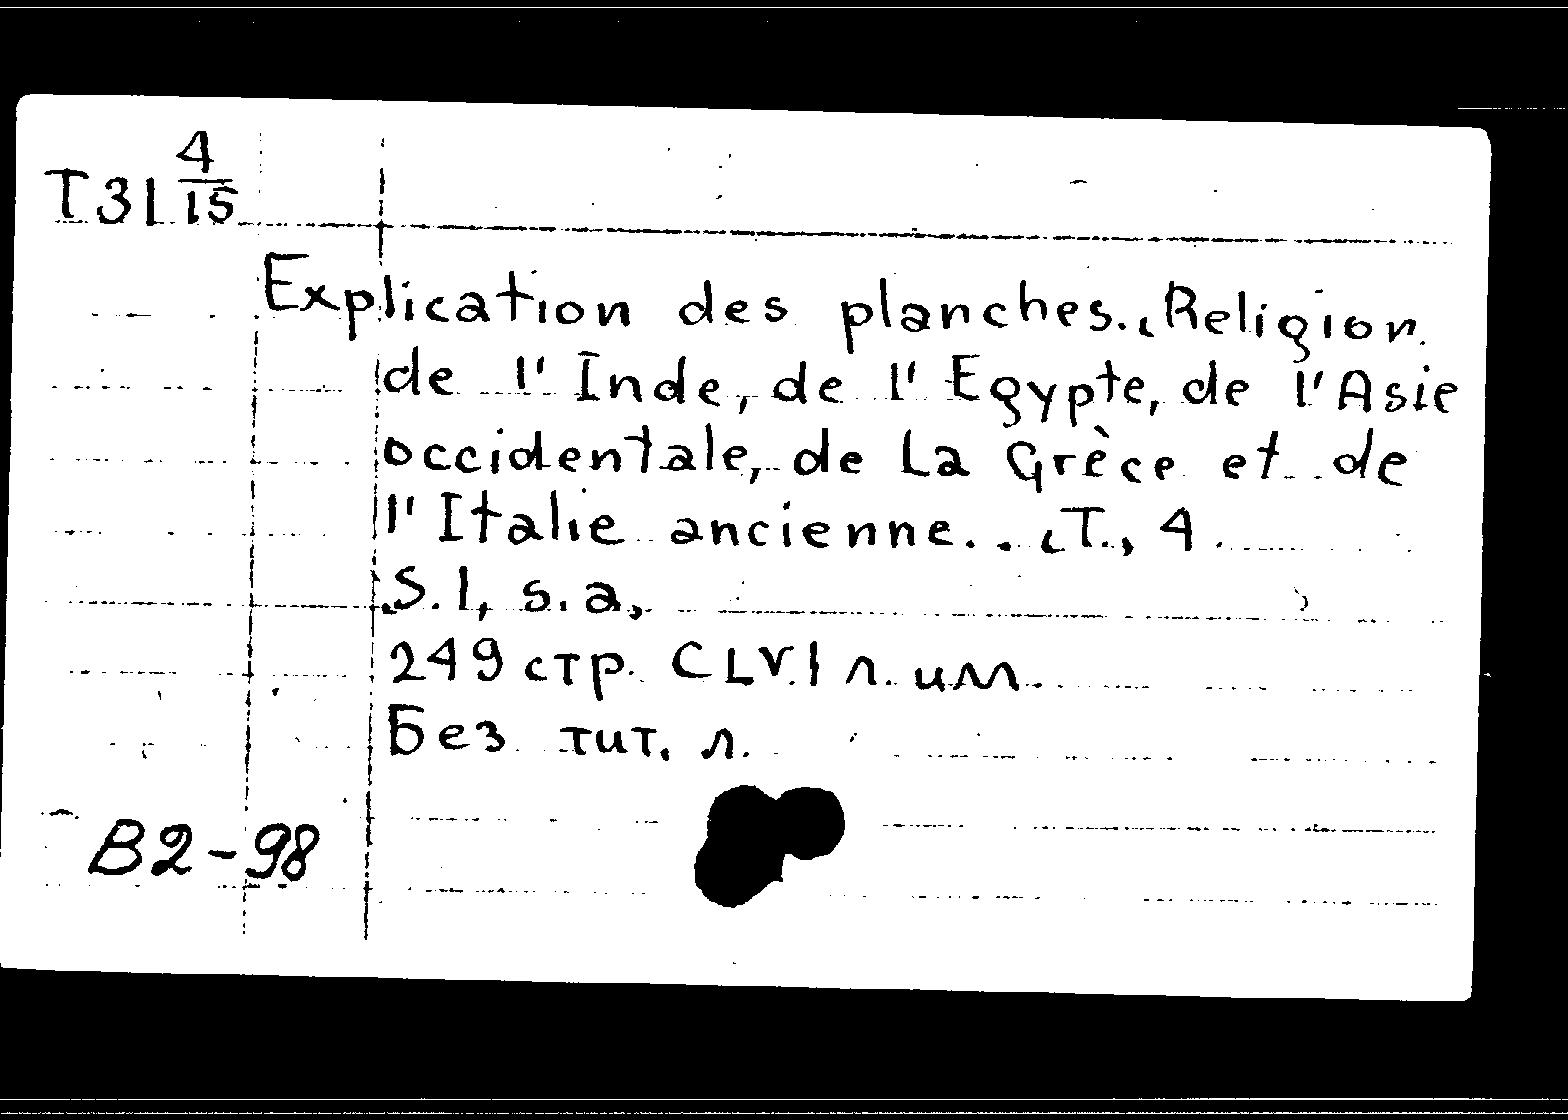 T31 4/15
Explication des planches. Religion
de l'Inde, de l'Egypte, de l'Asie
occidentale, de la Grèce et de
l'Italie ancienne.. T., 4
S.l, s.a,
249 стр. CLVI л. илл.
Без тит. л.
B2-98